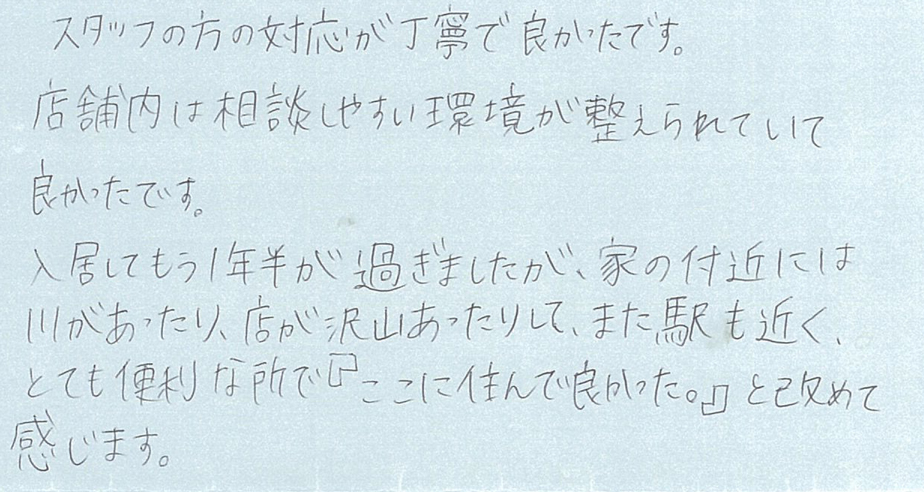 スタッフの方の対応が丁寧で良かったです。
店舗内は相談しやすい環境が整えられていて
良かったです。
入居してもう1年半が過ぎましたが、家の付近には
川があったり、店が沢山あったりして、また駅も近く、
とても便利な所で『ここに住んで良かった。』と改めて
感じます。